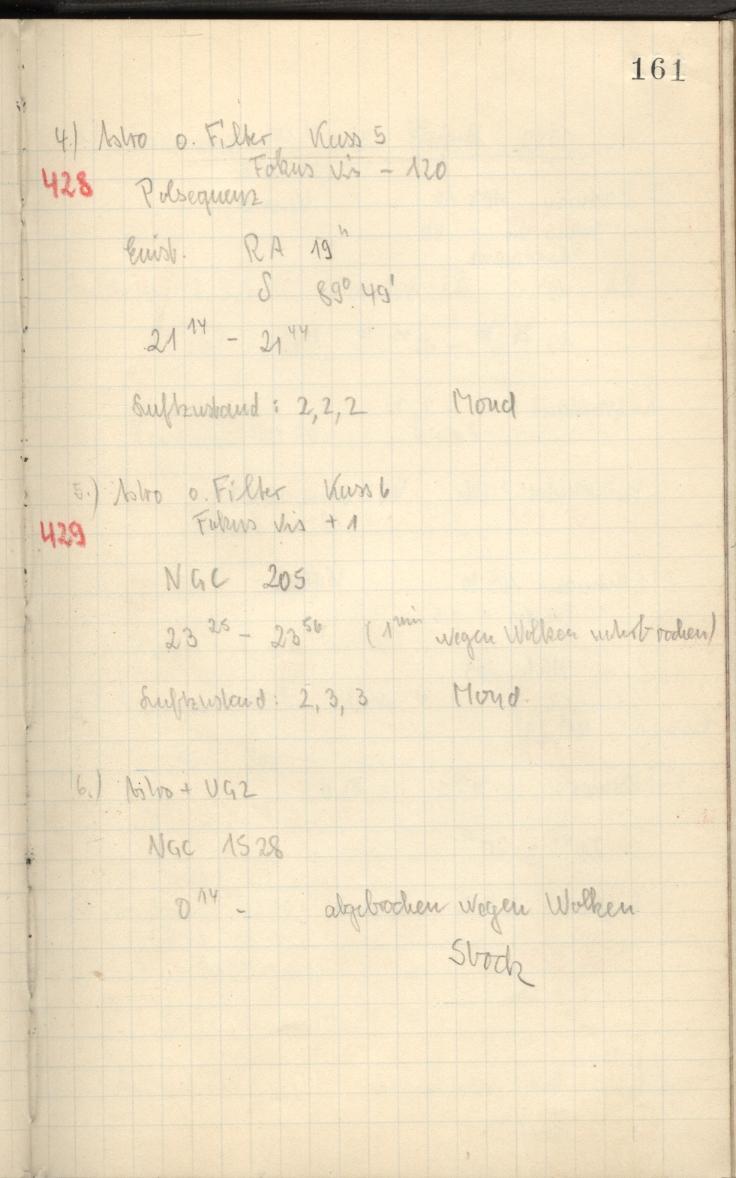 161
4.) Astro o. Filter, Kass 5
Fokus vis - 120
428 Polsequenz
Einst. RA 19ʰ
δ 89° 49'
21¹⁴ - 21⁴⁴
Luftzustand: 2,2,2 Mond
5.) Astro o. Filter Kass 6
429 Fokus vis + 1
NGC 205
23²⁵ - 23⁵⁶ (1ᵐⁱⁿ wegen Wolken unterbrochen)
Luftzustand: 2, 3, 3 Mond
6.) Astro + UG2
NGC 1528
0¹⁴ - abgebrochen wegen Wolken
Stock